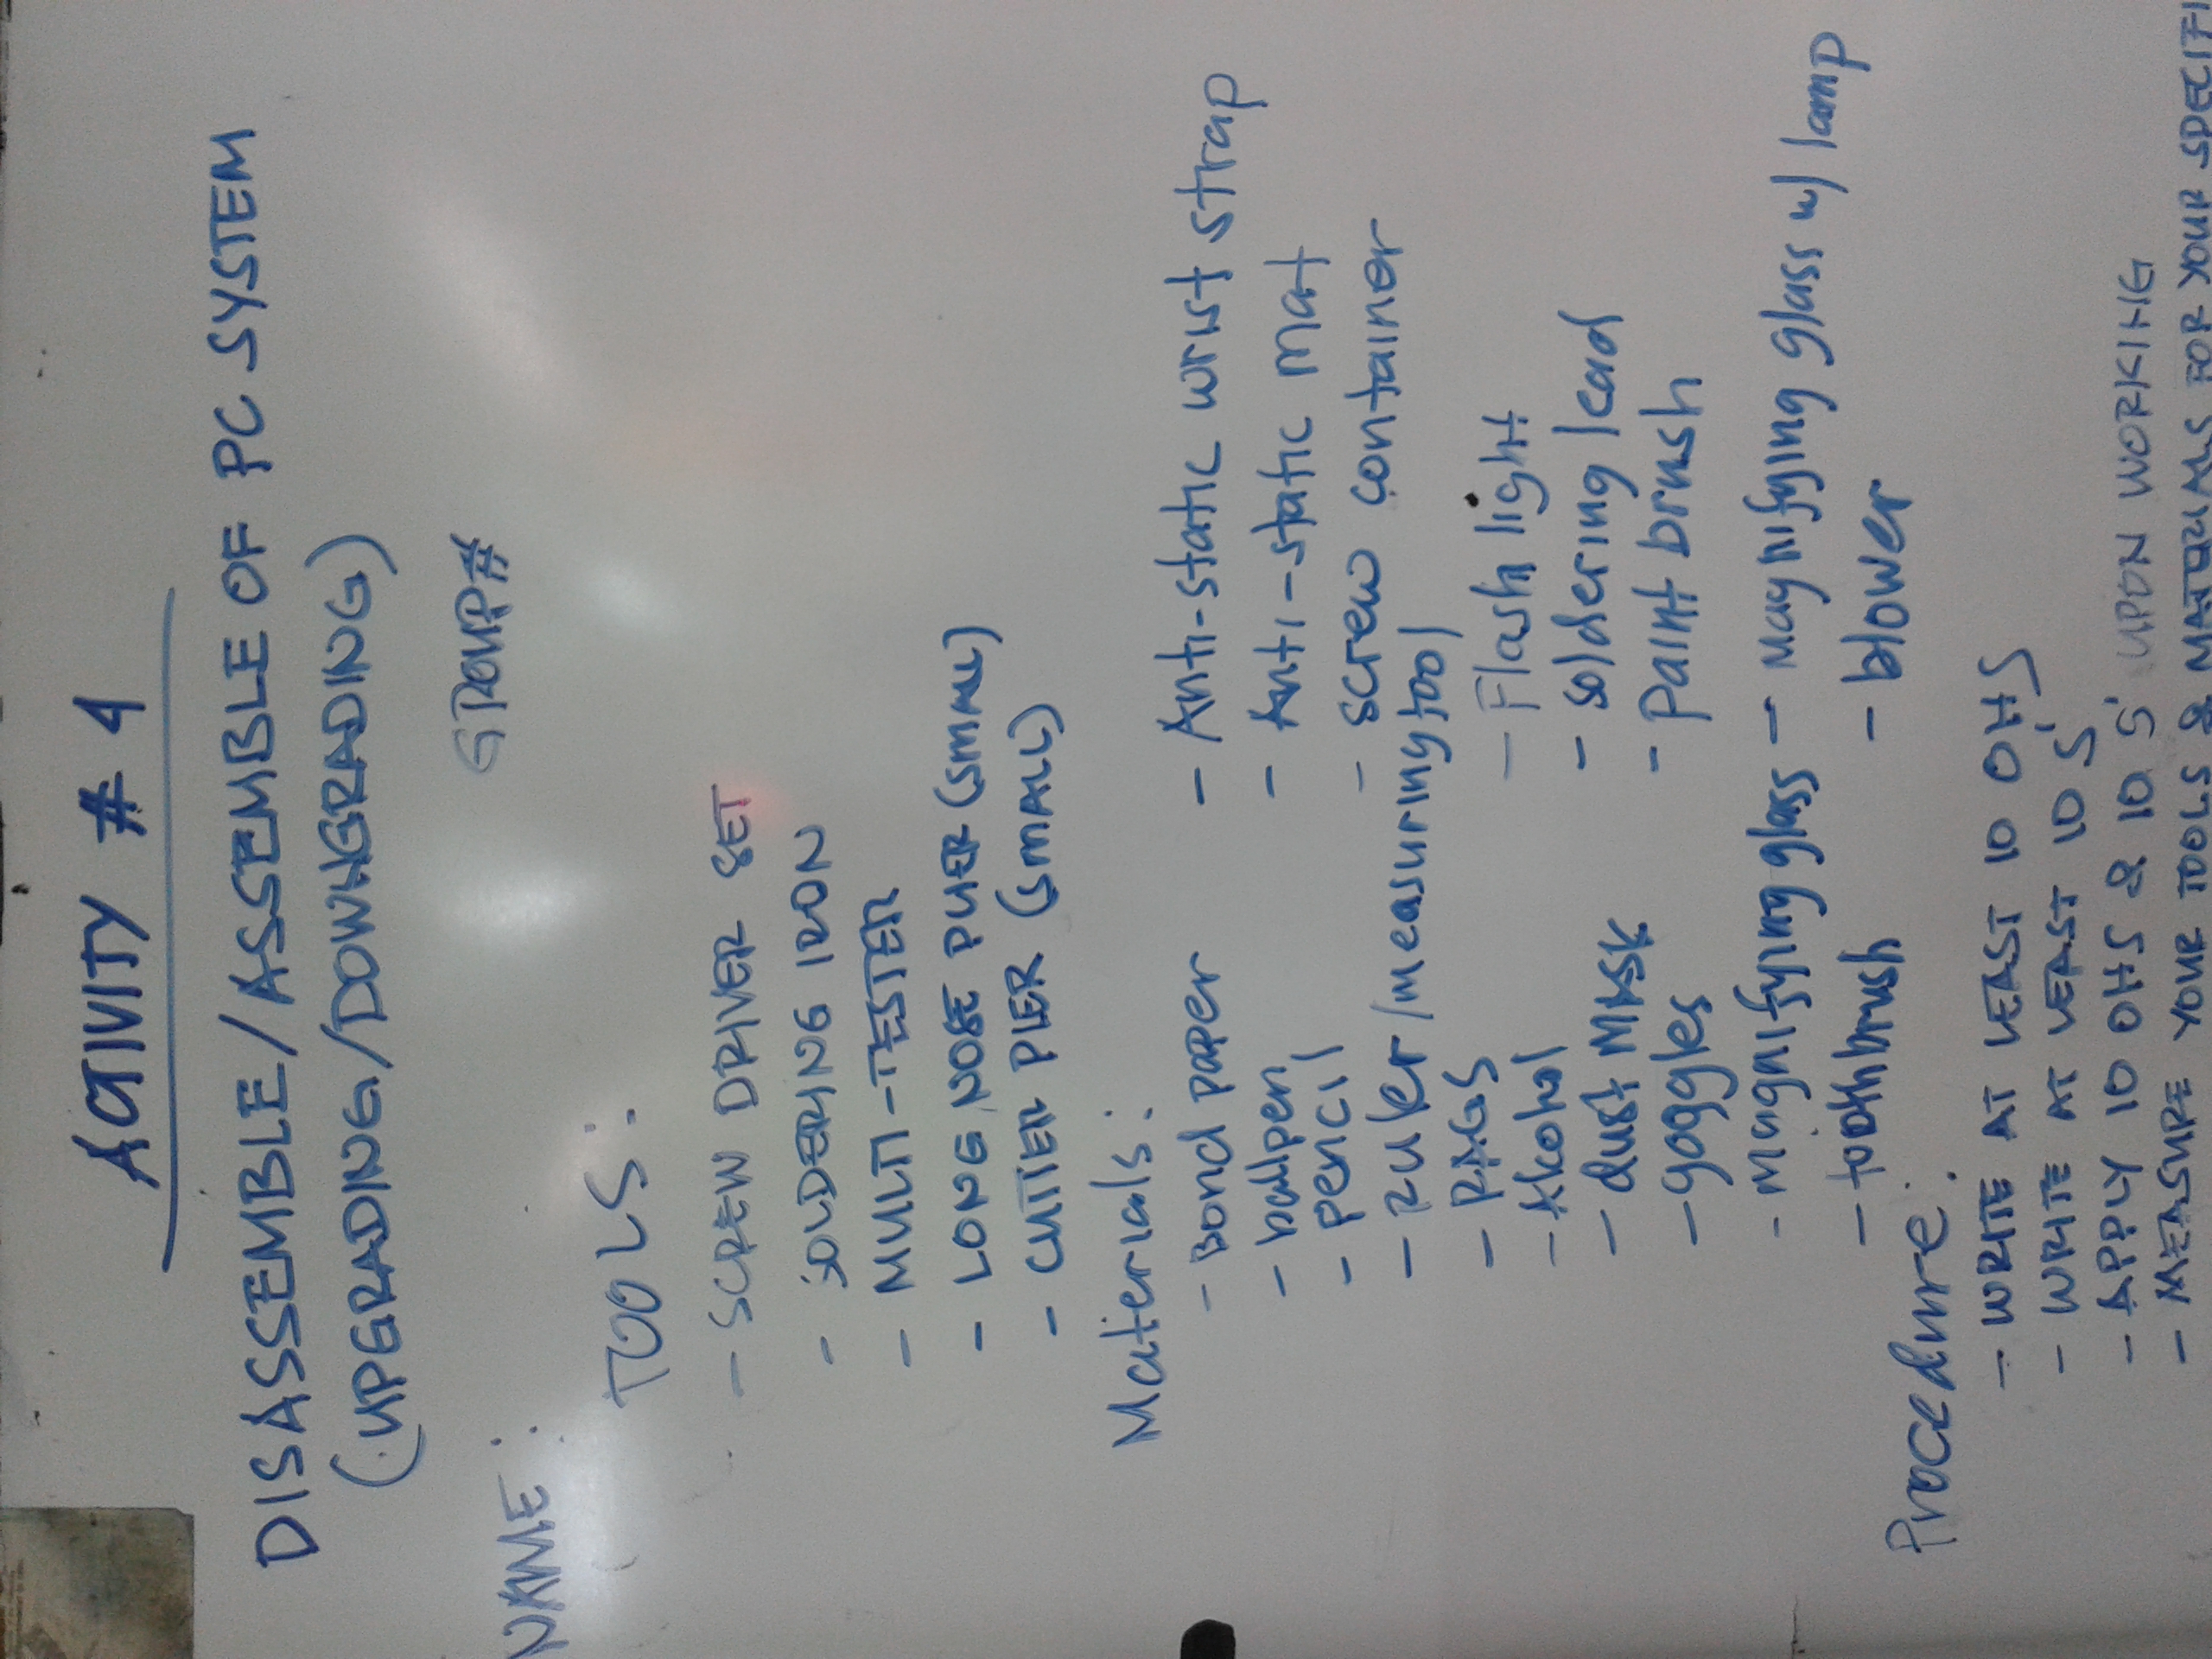 ACTIVITY # 4
DISASSEMBLE/ASSEMBLE OF PC SYSTEM
(UPGRADING/DOWNGRADING)
GROUP#
NAME:
TOOLS:
- SCREW DRIVER SET
- SOLDERING IRON
- MULTI-TESTER
- LONG NOSE PLIER (SMALL)
- CUTTER PLIER (SMALL)
Materials:
- Bond paper
- ballpen
- pencil
- ruler/measuring tool
- RAGS
- Alkohol
- dust MASK
- goggles
- Magnifying glass
- toothbrush
- Anti-static wrist strap
- Anti-static mat
- screw container
- Flash light
- soldering lead
- paint brush
- Magnifying glass w/ lamp
- blower
Procedure:
- WRITE AT LEAST 10 OHS
- WRITE AT LEAST 10 S'
- APPLY 10 OHS & 10 S' UPON WORKING
- MEASURE YOUR TOOLS & MATERIALS FOR YOUR SPECIFI